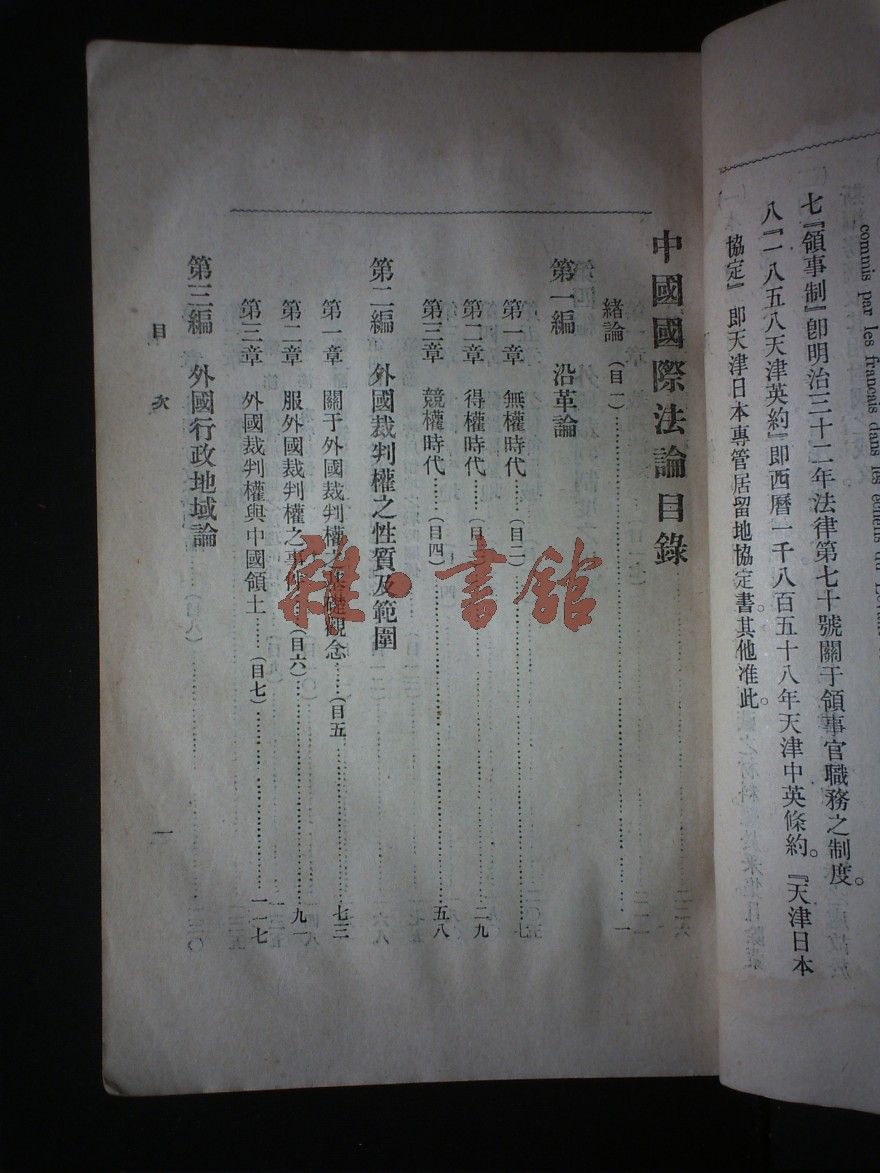 commis par les français dans les
七『領事制』卽明治三十二年法律第七十號關于領事官職務之制度。
八『一八五八天津英約』即西曆一千八百五十八年天津中英條約。『天津日本
協定』即天津日本專管居留地協定書其他准此。
中國國際法論目錄
緒論(目一)……一
第一編 沿革論
第一章 無權時代……(目二)……七
第二章 得權時代……(目三)……二九
第三章 競權時代……(目四)……五八
第二編 外國裁判權之性質及範圍
第一章 關于外國裁判權之基礎觀念……(目五)……七三
第二章 服外國裁判權之事件……(目六)……九一
第三章 外國裁判權與中國領土……(目七)……一一七
第三編 外國行政地域論
目次
一
雜·書館